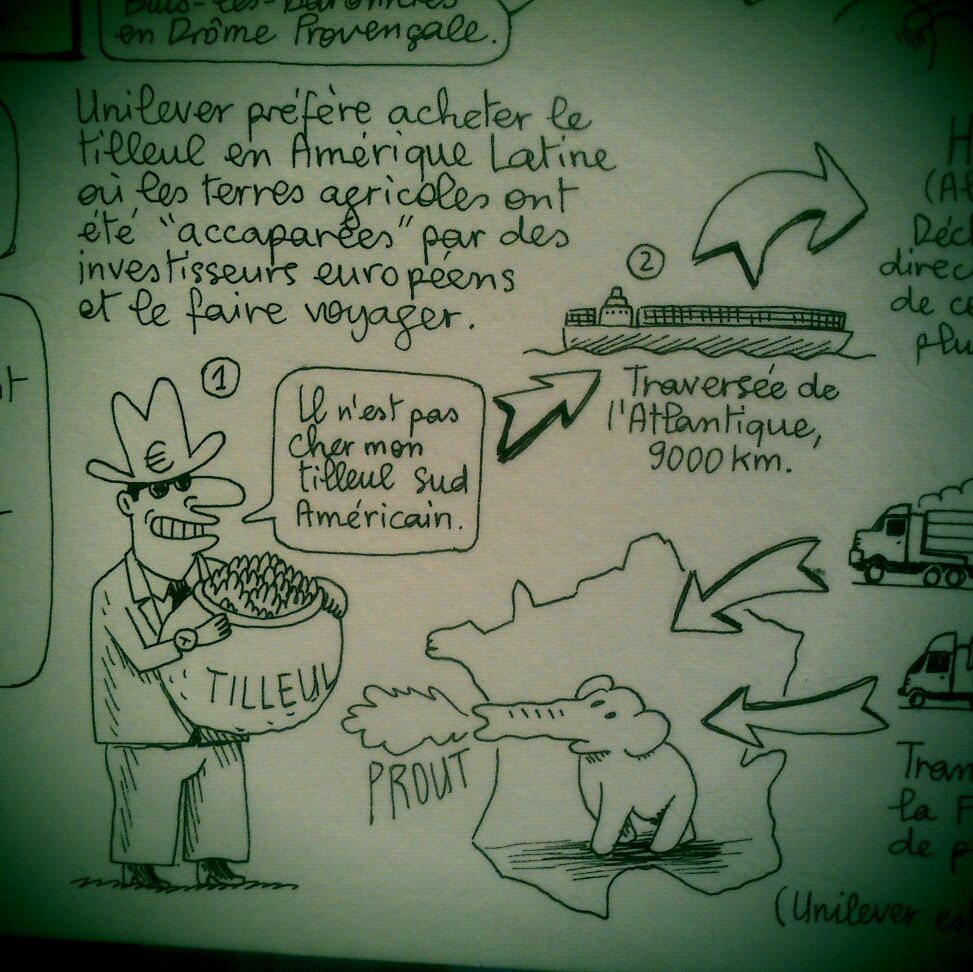 en Drôme Provençale.
Unilever préfère acheter le
tilleul en Amérique Latine
où les terres agricoles ont
été "accaparées" par des
investisseurs européens
et le faire voyager.
1
€
Il n'est pas
cher mon
tilleul sud
Américain.
TILLEUL
2
Traversée de
l'Atlantique,
9000 km.
PROUT
direc
de
plu
Tran
la F
de p
(Unilever